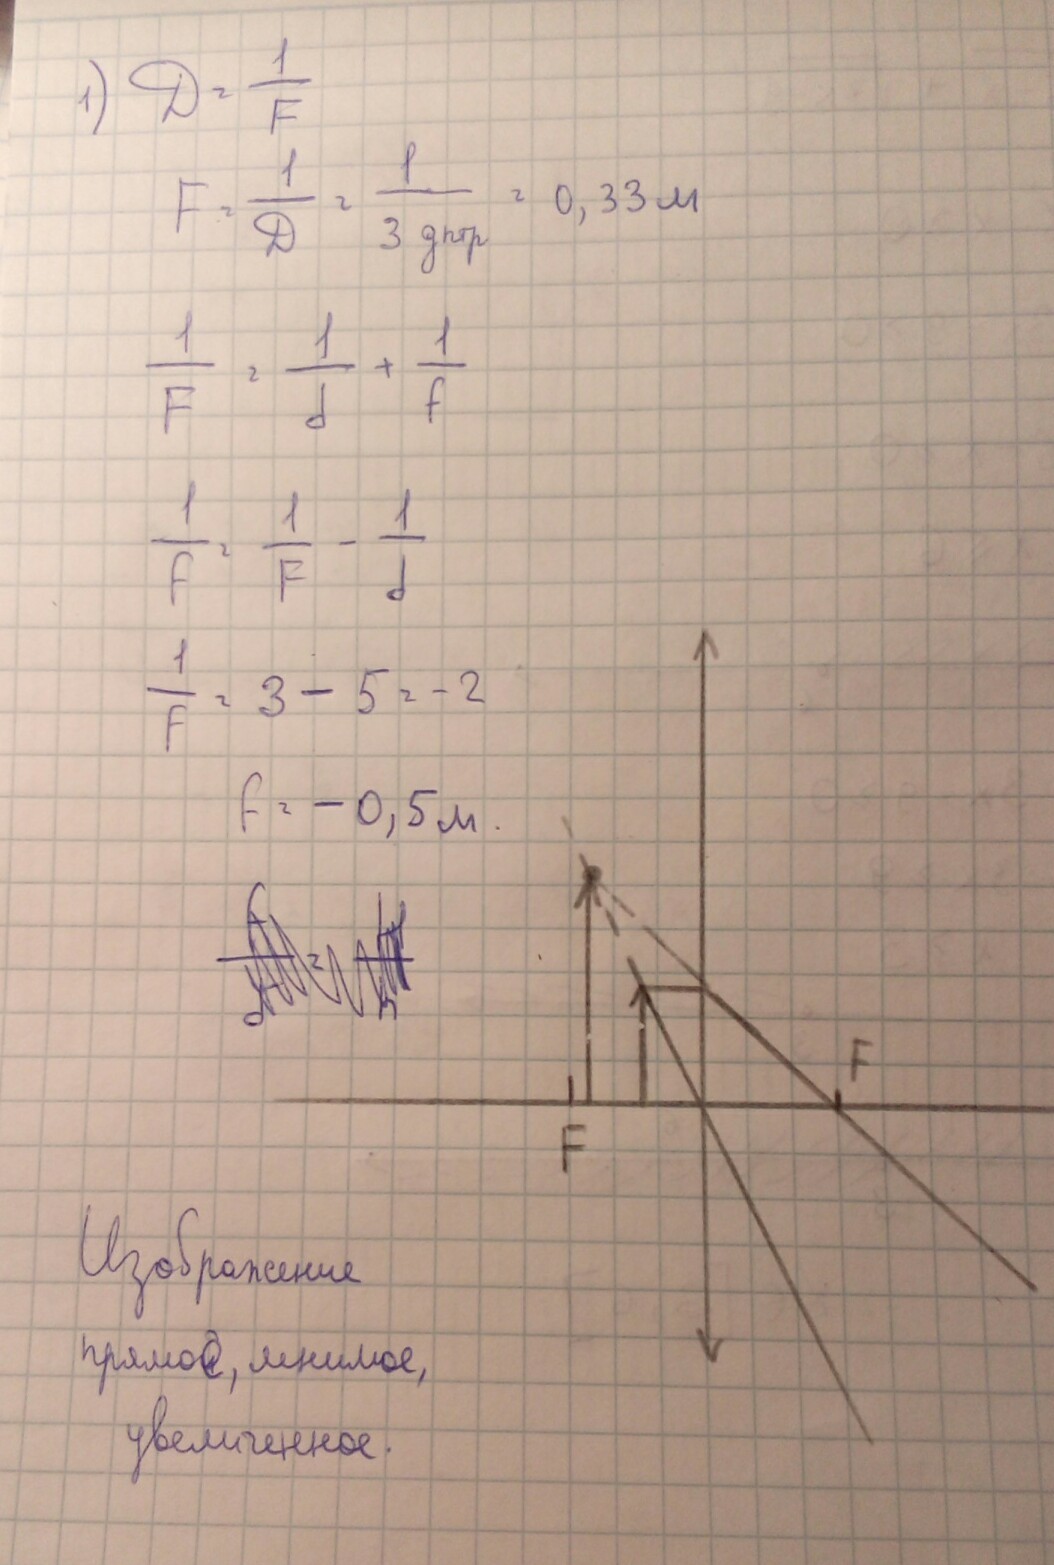 1) D = 1/F
F = 1/D = 1/3 дптр = 0,33 м
1/F = 1/d + 1/f
1/f = 1/F - 1/d
1/f = 3 - 5 = -2
f = -0,5 м.
F
F
Изображение
прямое, мнимое,
увеличенное.